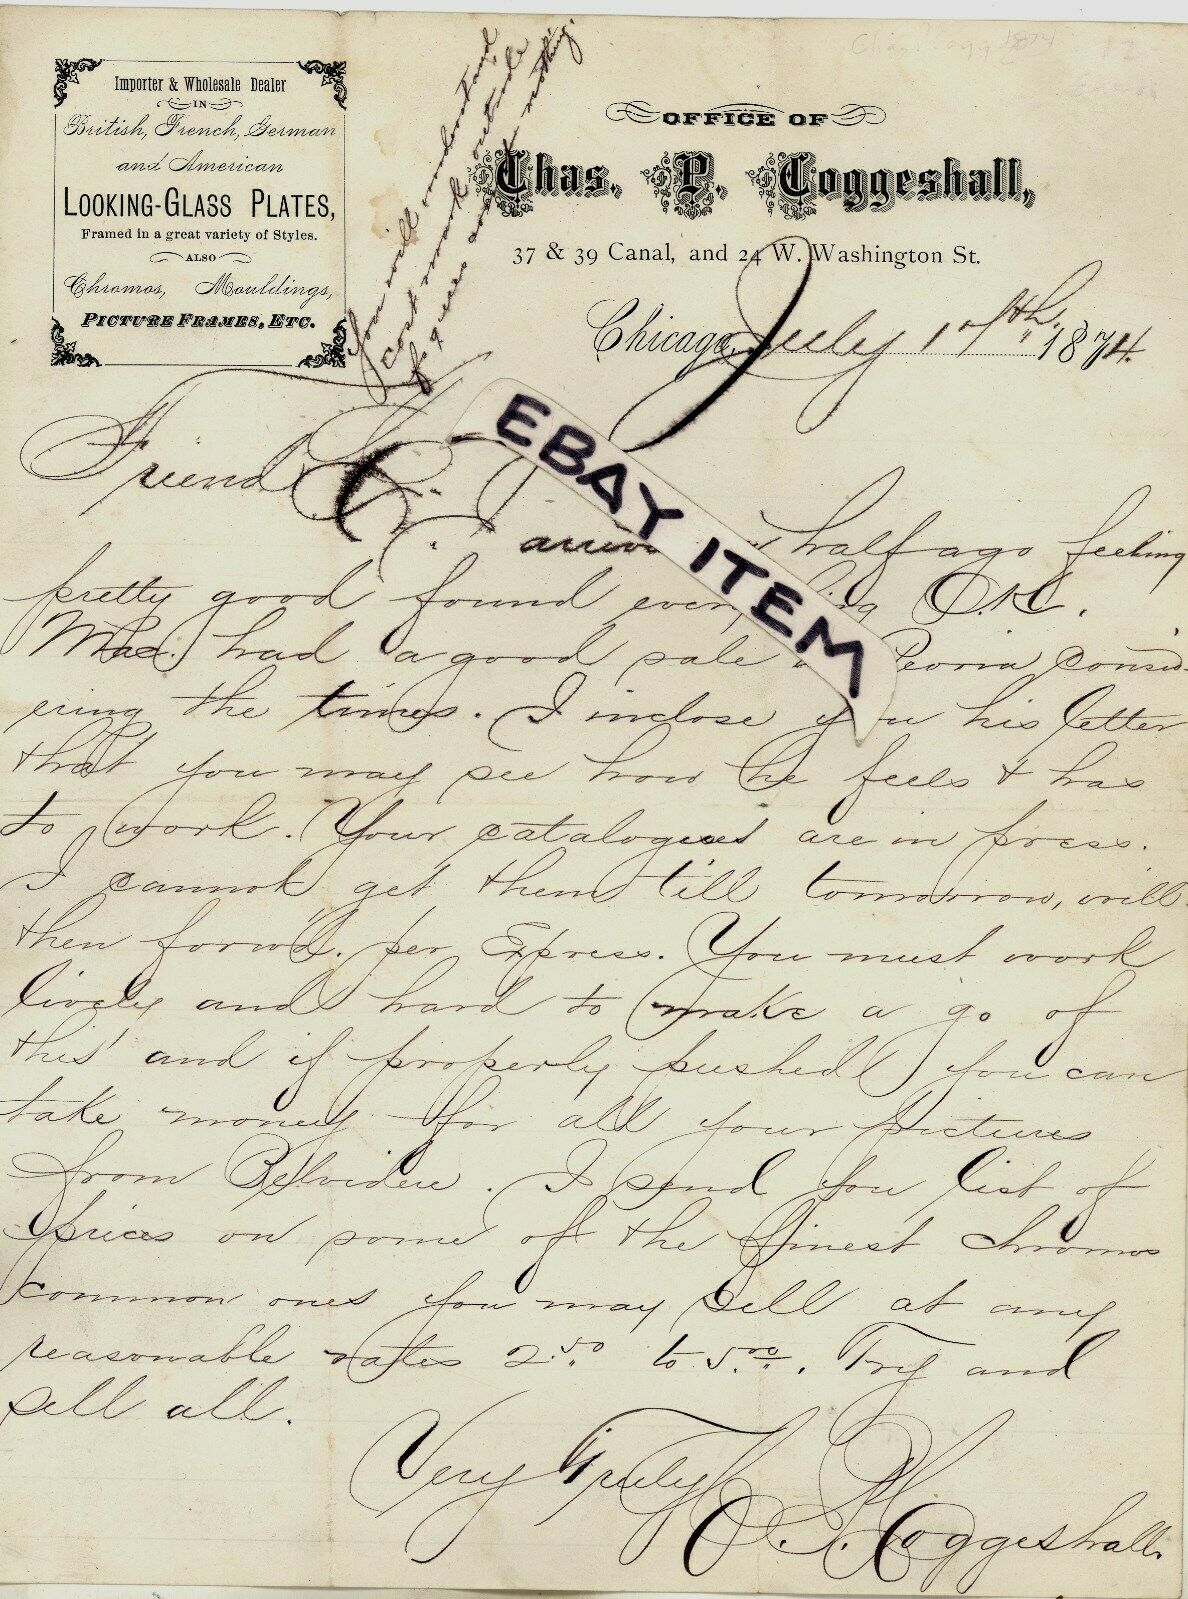 Importer & Wholesale Dealer
IN
British, French, German
and American
LOOKING-GLASS PLATES,
Framed in a great variety of Styles.
ALSO
Chromos, Mouldings,
PICTURE FRAMES, ETC.
You will understand
cost mark outside
figures nothing.
OFFICE OF
Chas. P. Coggeshall,
37 & 39 Canal, and 24 W. Washington St.
Chicago, July 1874
EBAY ITEM
Friend
half ago feeling
pretty good found O.K.
Mac. had a good sale Peoria consid-
ering the times. I inclose you his letter
that you may see how he feels & has
to work. Your catalogues are in press.
I cannot get them till tomorrow, will
then forw'd. per Express. You must work
lively and hard to make a go of
this and if properly pushed you can
take money for all your pictures
from Belvidere. I send you list of
prices on some of the finest chromos
common ones you may sell at any
reasonable rates 2.50 to 5.00. Try and
sell all.
Very Truly
C. P. Coggeshall.